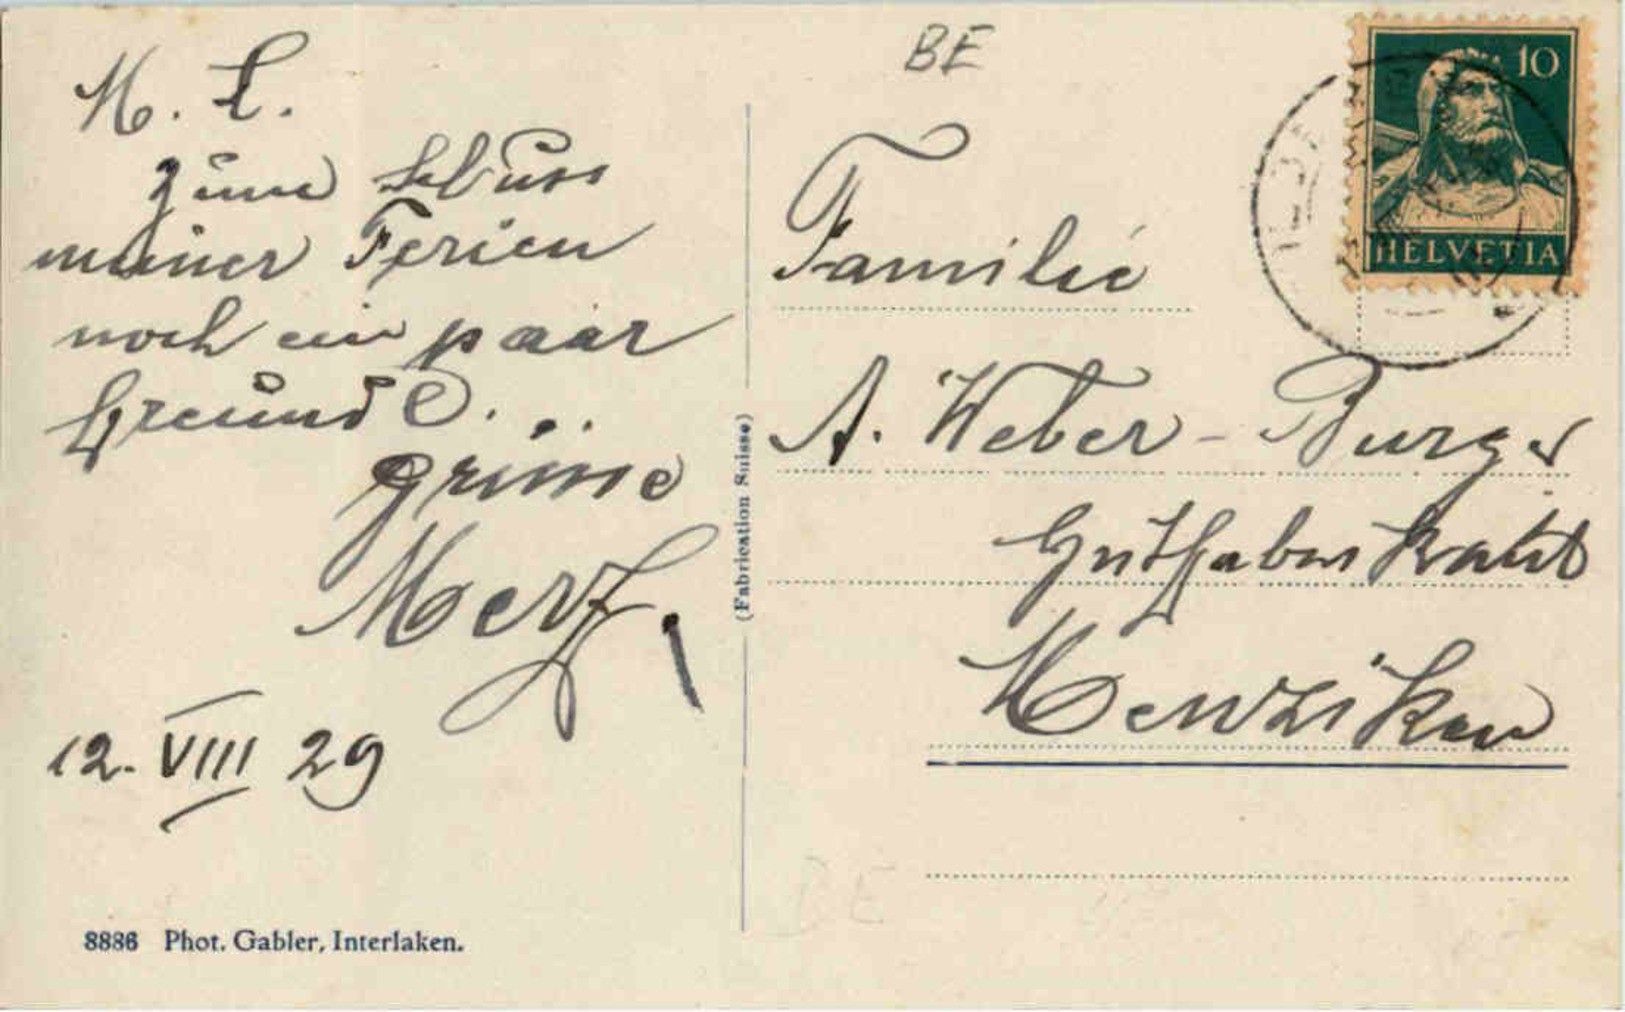 M. L.
zum Schluss
meiner Ferien
noch ein paar
Freundl.
Grüsse
Merz
12. VIII 29
8886 Phot. Gabler, Interlaken.
(Fabrication Suisse)
BE
10
HELVETIA
Familie
A. Weber-Burger
Menziken
BE